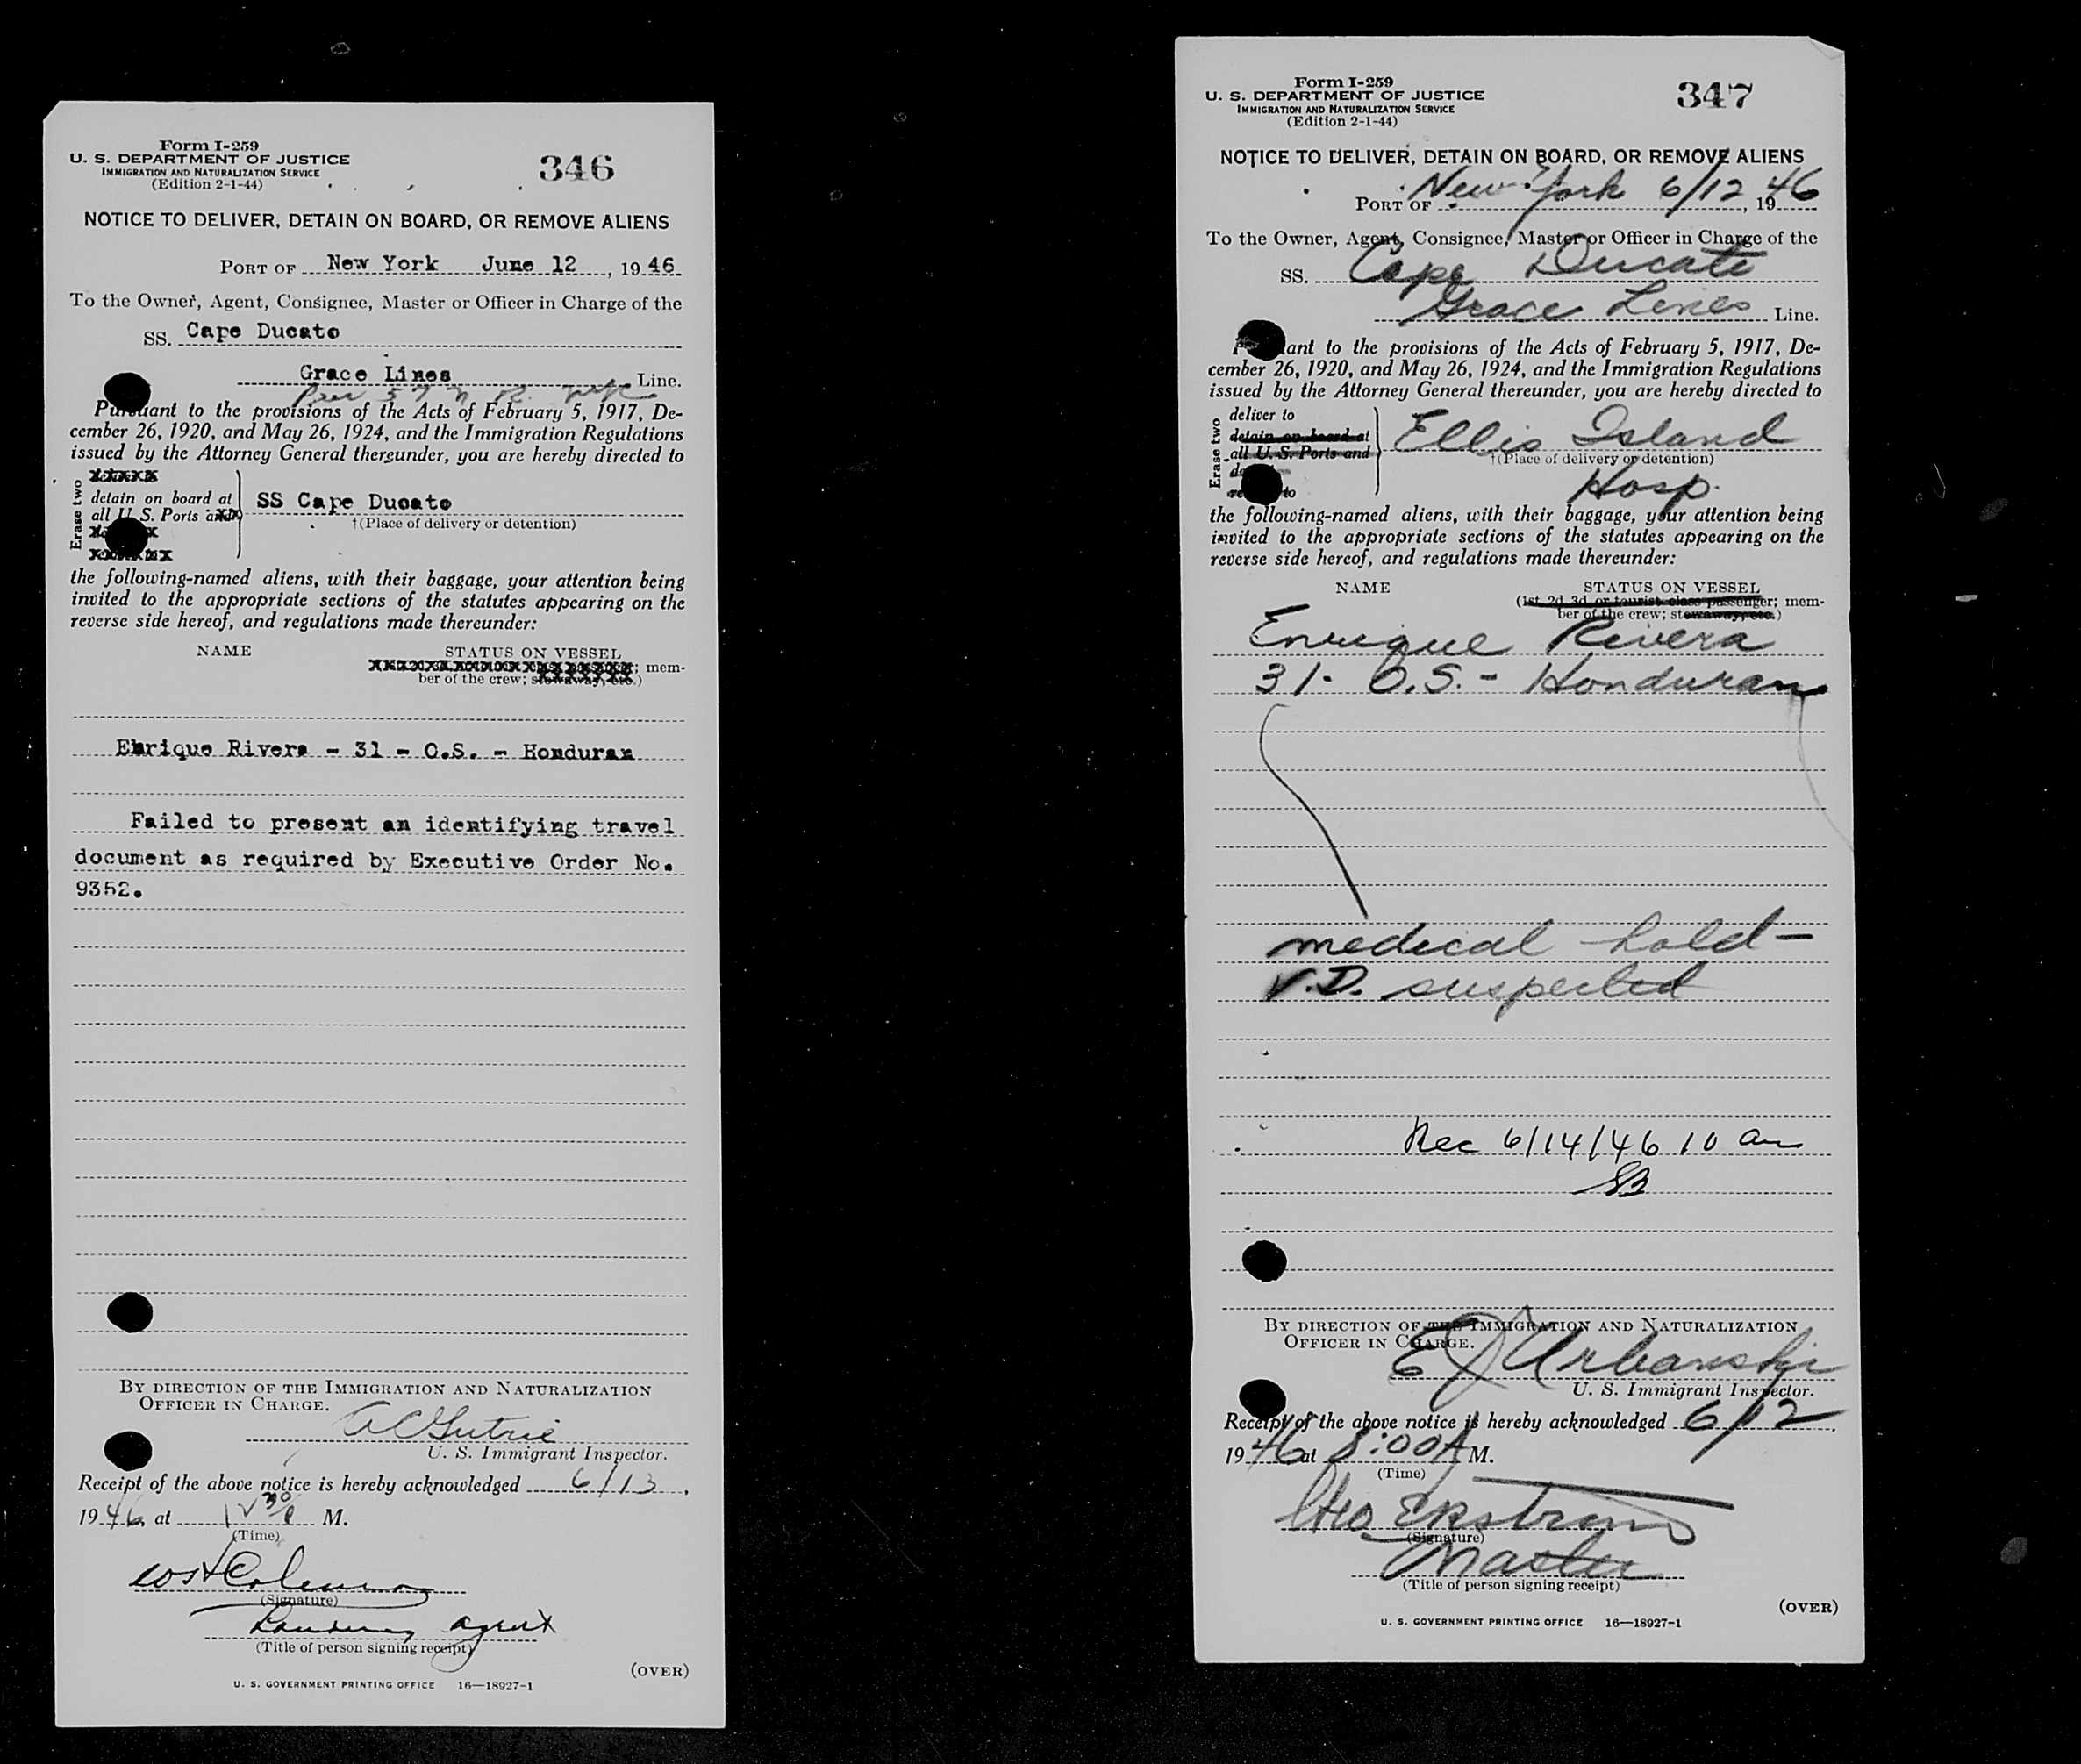 Form I-259
U. S. DEPARTMENT OF JUSTICE
IMMIGRATION AND NATURALIZATION SERVICE
(Edition 2-1-44)
346
NOTICE TO DELIVER, DETAIN ON BOARD, OR REMOVE ALIENS
PORT OF New York June 12, 1946
To the Owner, Agent, Consignee, Master or Officer in Charge of the
SS. Cape Ducato
Grace Lines Line.
Pier 57 N. R.
Pursuant to the provisions of the Acts of February 5, 1917, De-
cember 26, 1920, and May 26, 1924, and the Immigration Regulations
issued by the Attorney General thereunder, you are hereby directed to
Erase two
detain on board at
all U. S. Ports
SS Cape Ducato
†(Place of delivery or detention)
the following-named aliens, with their baggage, your attention being
invited to the appropriate sections of the statutes appearing on the
reverse side hereof, and regulations made thereunder:
NAME STATUS ON VESSEL
; mem-
ber of the crew; stowaway, etc.)
Enrique Rivera - 31 - O.S. - Honduran
Failed to present an identifying travel
document as required by Executive Order No.
9352.
BY DIRECTION OF THE IMMIGRATION AND NATURALIZATION
OFFICER IN CHARGE.
A C Gutrie
U. S. Immigrant Inspector.
Receipt of the above notice is hereby acknowledged 6/13,
1946, at 12 30 P M.
(Time)
(Signature)
Landing agent
(Title of person signing receipt)
(OVER)
U. S. GOVERNMENT PRINTING OFFICE 16—18927-1
Form I-259
U. S. DEPARTMENT OF JUSTICE
IMMIGRATION AND NATURALIZATION SERVICE
(Edition 2-1-44)
347
NOTICE TO DELIVER, DETAIN ON BOARD, OR REMOVE ALIENS
PORT OF New York 6/12, 1946
To the Owner, Agent, Consignee, Master or Officer in Charge of the
SS. Cape Ducato
Grace Lines Line.
Pursuant to the provisions of the Acts of February 5, 1917, De-
cember 26, 1920, and May 26, 1924, and the Immigration Regulations
issued by the Attorney General thereunder, you are hereby directed to
Erase two
deliver to
detain on board at
all U. S. Ports and
Ellis Island
†(Place of delivery or detention)
Hosp.
the following-named aliens, with their baggage, your attention being
invited to the appropriate sections of the statutes appearing on the
reverse side hereof, and regulations made thereunder:
NAME STATUS ON VESSEL
(1st, 2d, 3d, or tourist class passenger; mem-
ber of the crew; stowaway, etc.)
Enrique Rivera
31 - O.S. - Honduran
medical hold -
V.D. suspected
Rec 6/14/46 10 am
SB
BY DIRECTION OF THE IMMIGRATION AND NATURALIZATION
OFFICER IN CHARGE.
E J Urbanski
U. S. Immigrant Inspector.
Receipt of the above notice is hereby acknowledged 6/12,
1946 at 8:00 A M.
(Time)
Ekstrom
(Signature)
Master
(Title of person signing receipt)
(OVER)
U. S. GOVERNMENT PRINTING OFFICE 16—18927-1